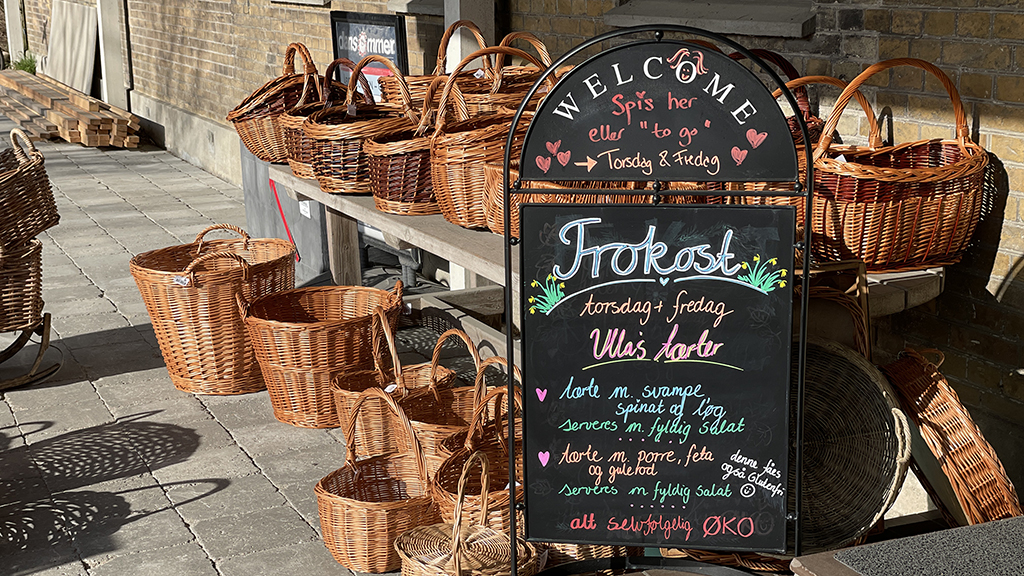 WELCOME
Spis her
eller "to go"
→ Torsdag & Fredag
Frokost
torsdag + fredag
Ullas tærter
tærte m. svampe
spinat og løg
serveres m. fyldig salat
tærte m. porre, feta
og gulerod
denne fåes
også Glutenfri
serveres m fyldig salat
alt selvfølgelig ØKO